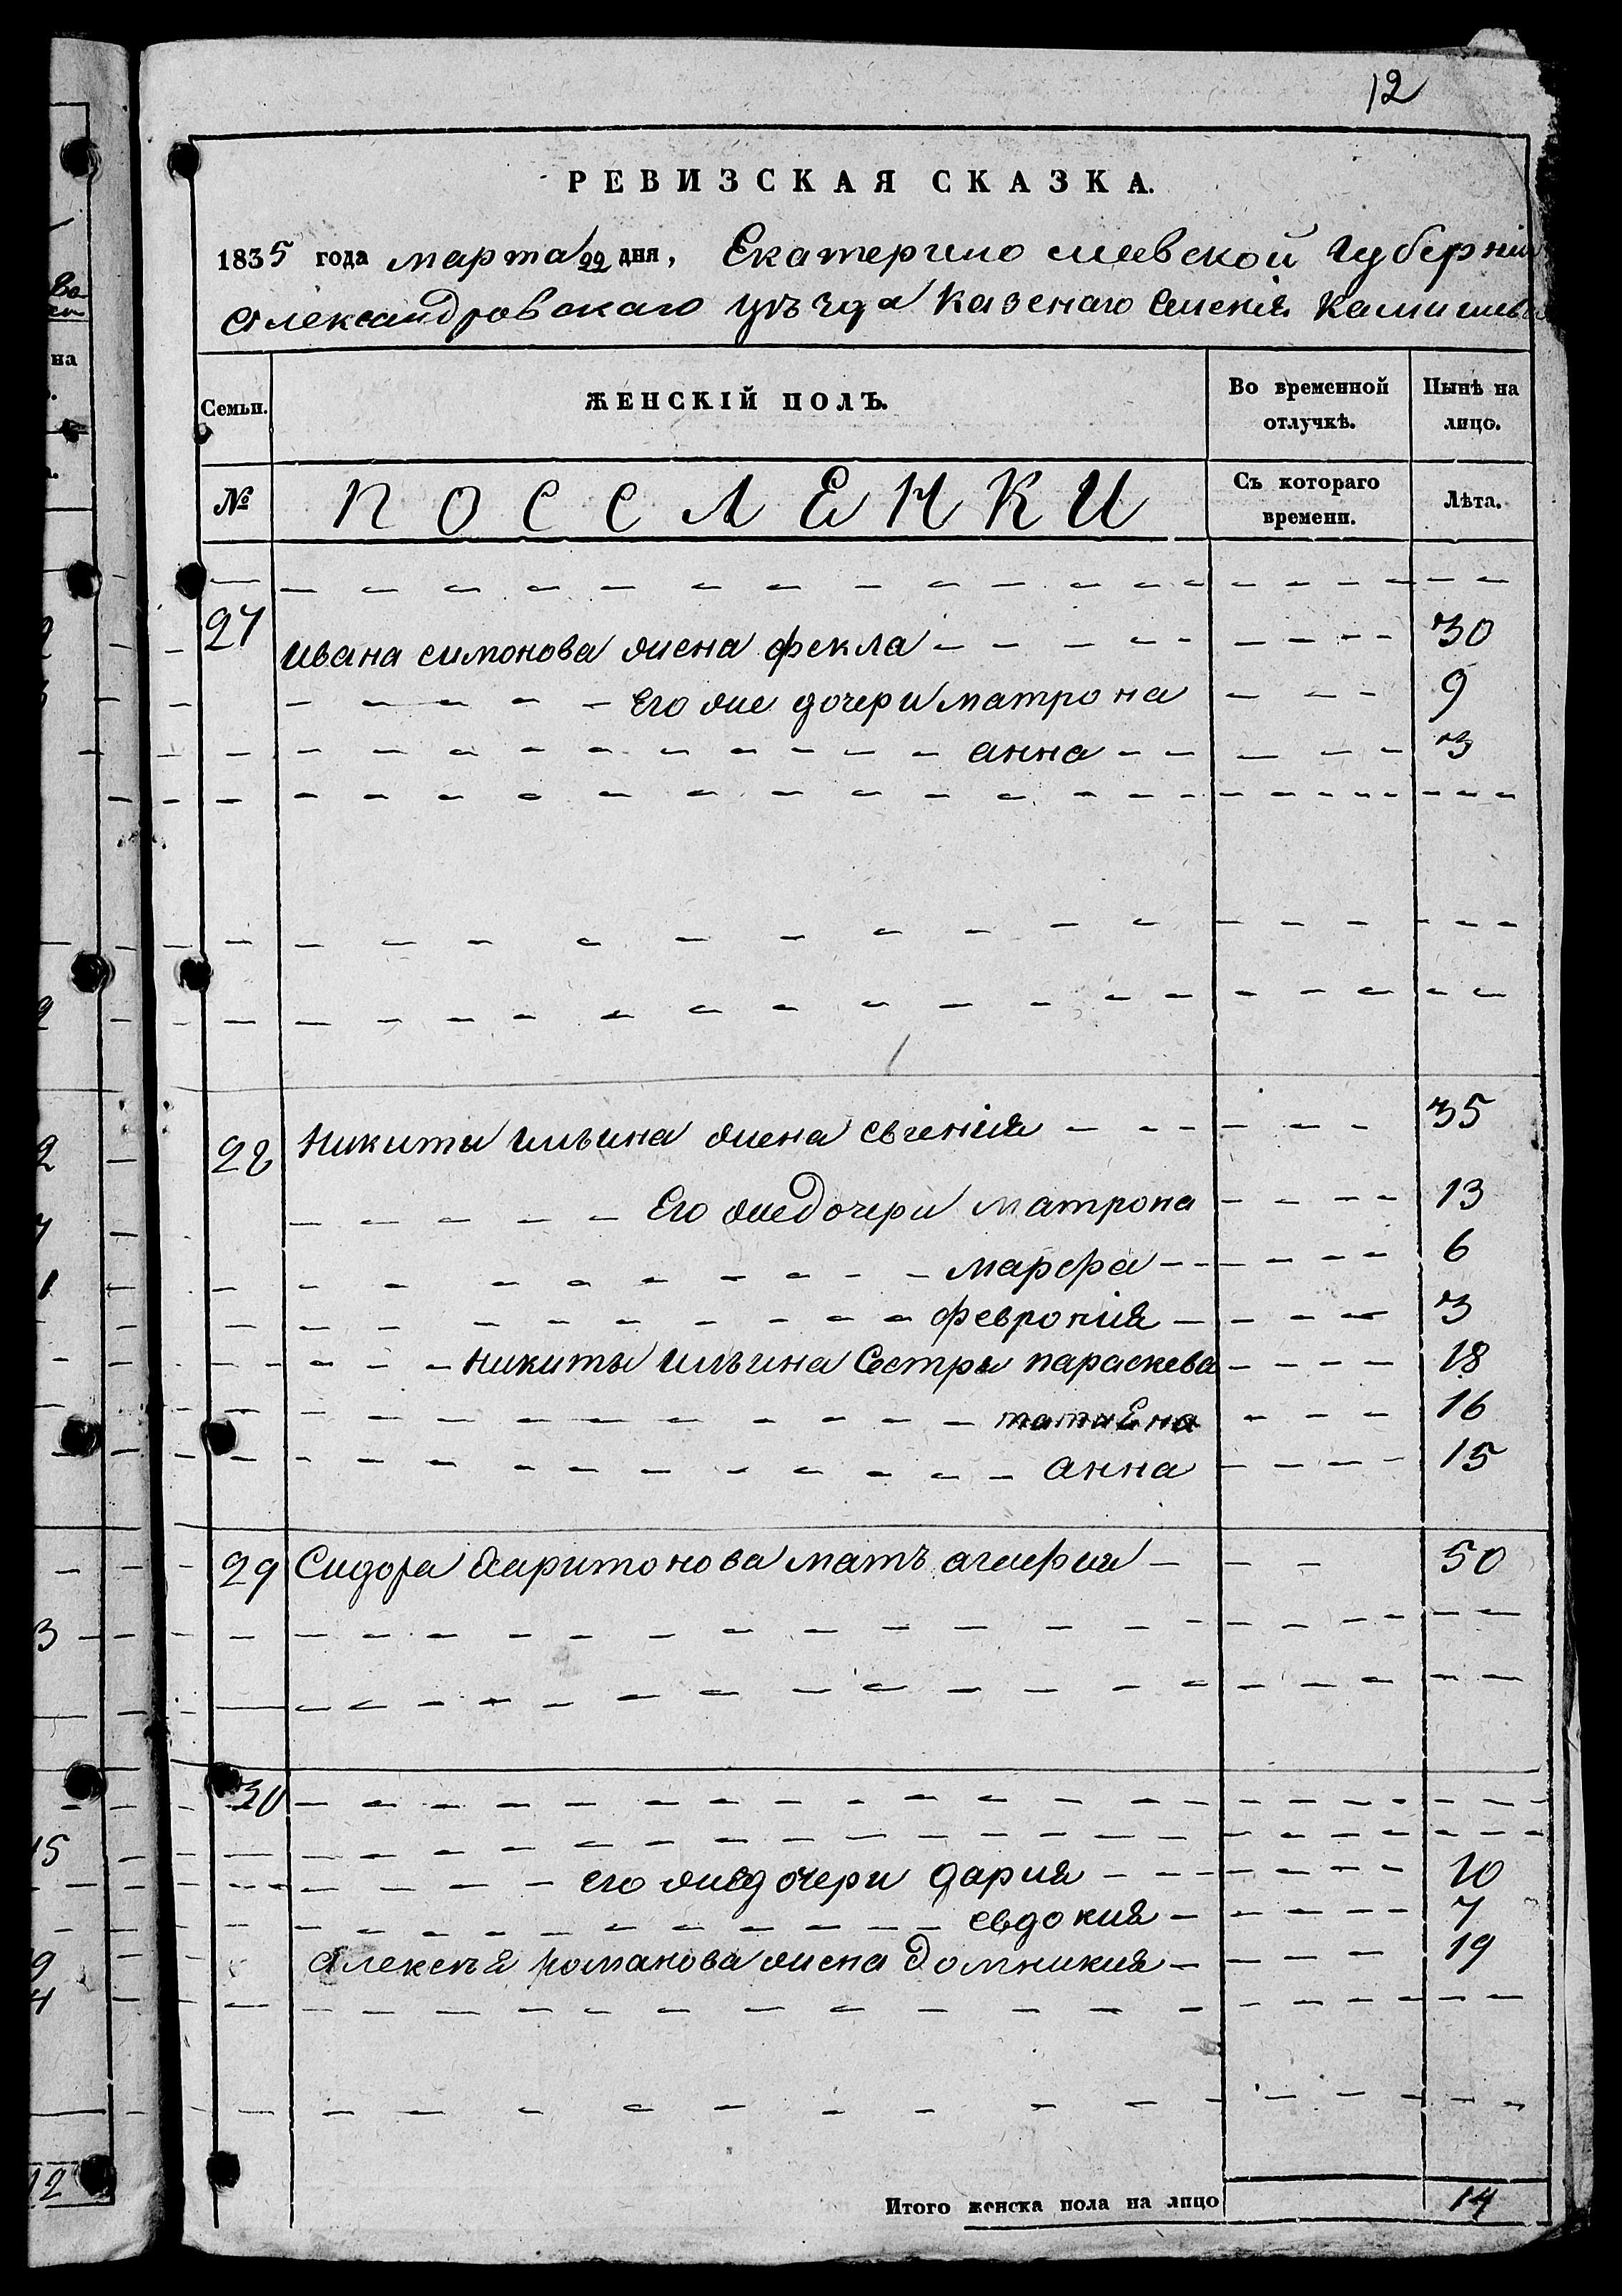 12
РЕВИЗСКАЯ СКАЗКА.
1835 года марта 22 дня, Екатеринославской губерніи
Александровскаго уѣзда казенаго селенія Камишева
Семьи. ЖЕНСКІЙ ПОЛЪ. Во временной отлучкѣ. Нынѣ на лицо.
№ ПОССЛЕНКИ Съ котораго времени. Лѣта.
27 Ивана симонова жена фекла 30
Его же дочери матрона 9
анна 3
28 Никиты ильина жена евгенія 35
Его же дочери матрона 13
марфа 6
феврония 3
Никиты ильина сестры параскева 18
татиЕна 16
анна 15
29 Сидора харитонова мать агафия 50
30
его же дочери дария 10
евдокия 7
Алексѣя романова жена домникия 19
Итого женска пола на лицо 14